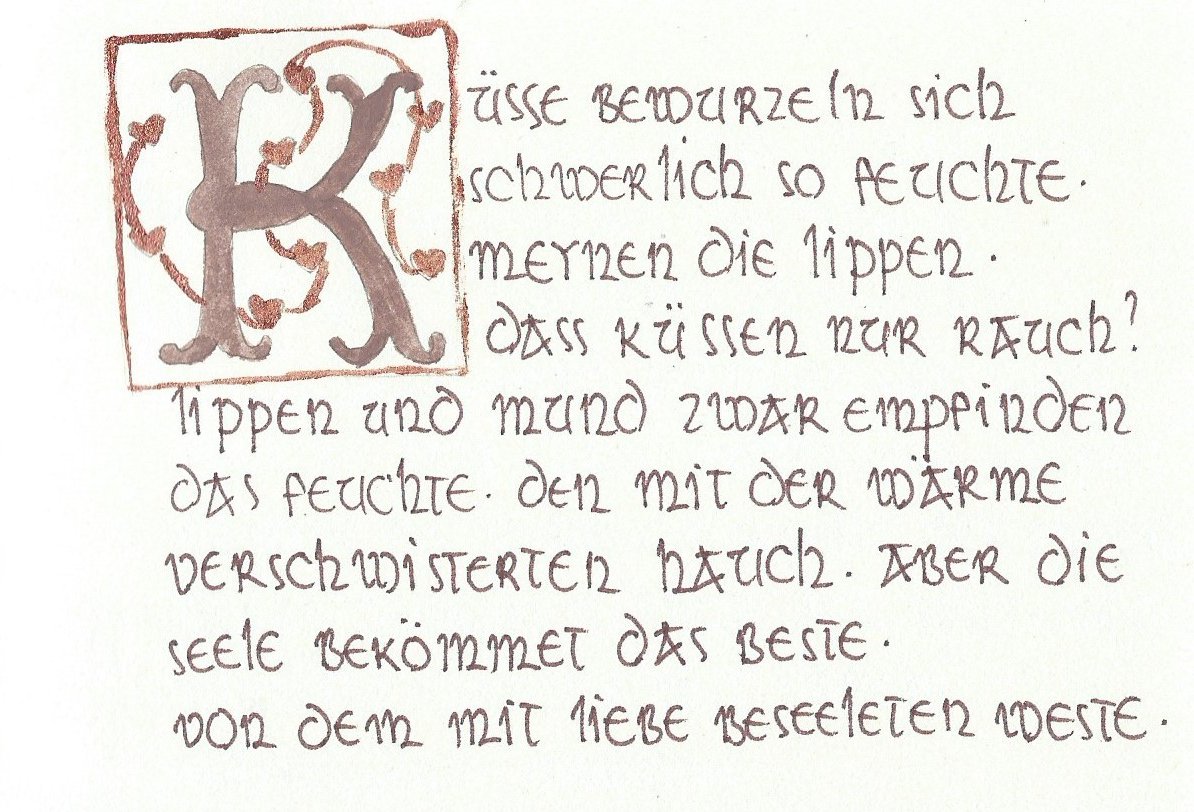 Küsse bewurzeln sich
schwerlich so feuchte.
meynen die lippen.
dass küssen nur rauch?
lippen und mund zwar empfinden
das feuchte. den mit der wärme
verschwisterten hauch. aber die
seele bekömmet das beste.
von dem mit liebe beseeleten weste.